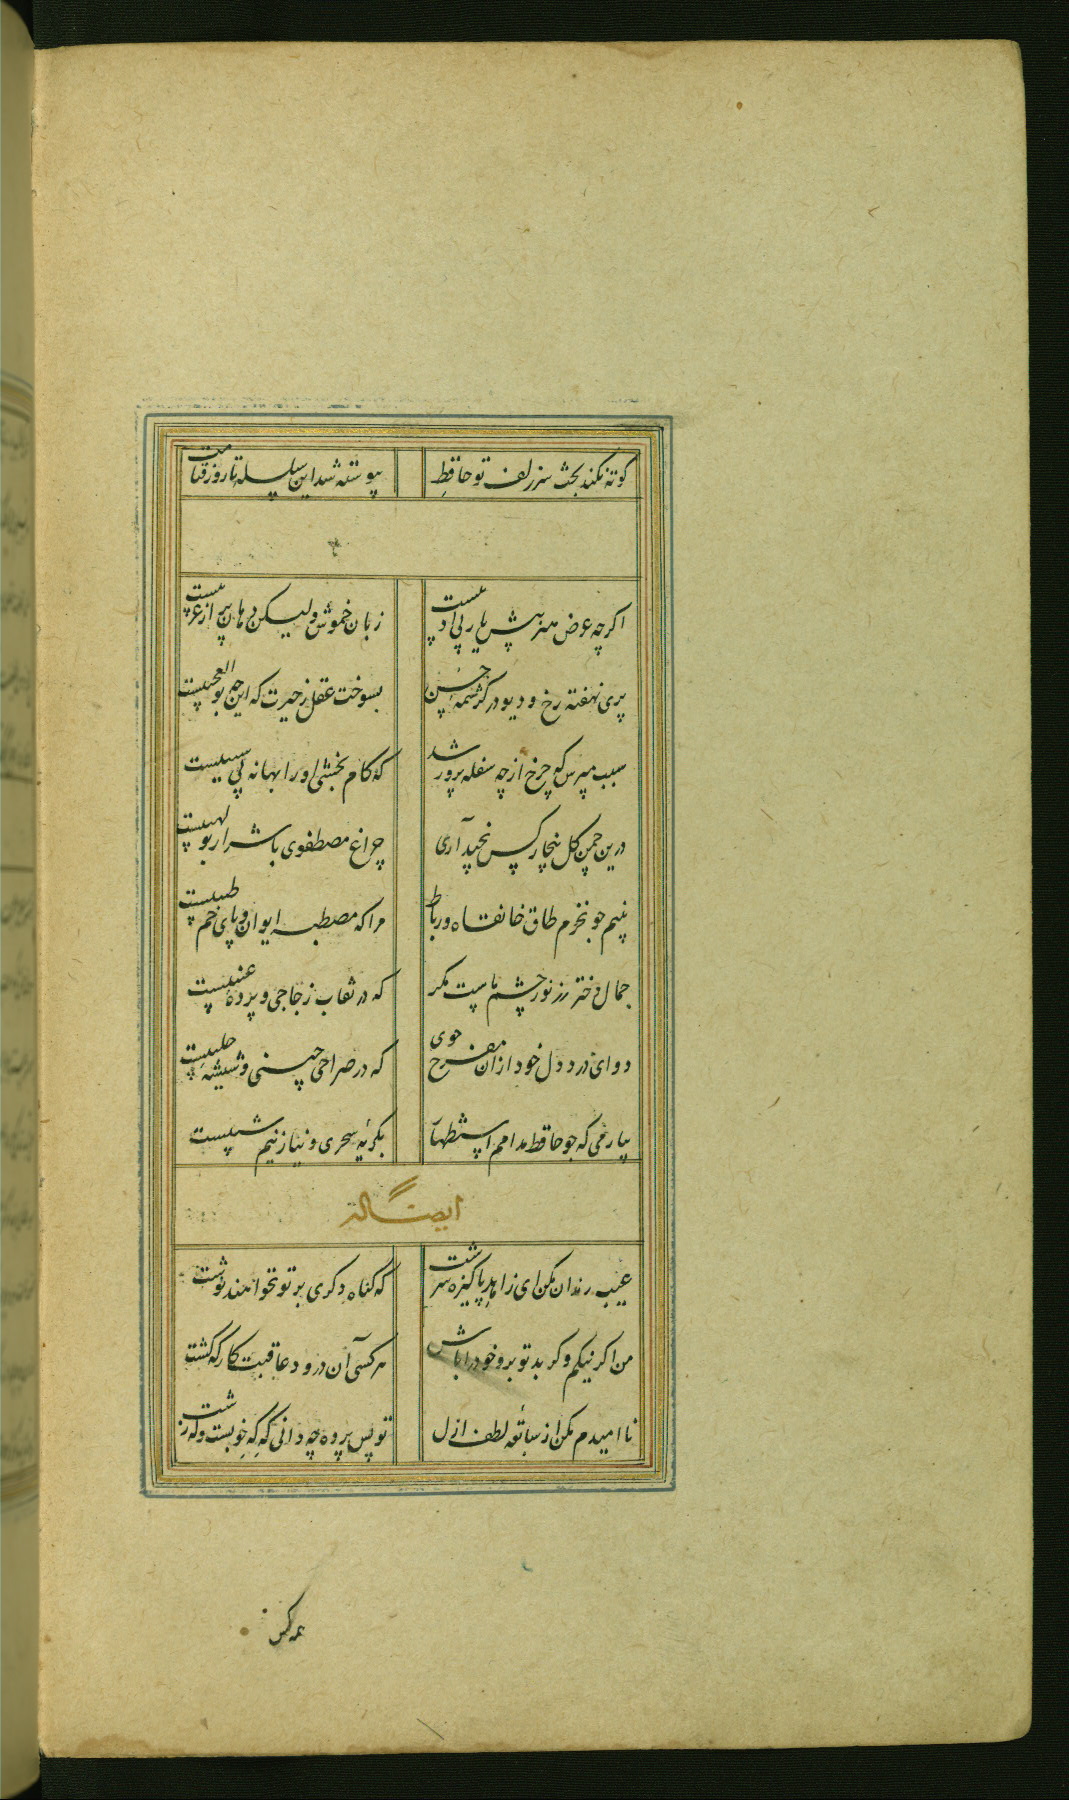 کوته نکند بحث سر زلف تو حافظ
پیوسته شد این سلسله تا روز قیامت
اکرچه عرض هنر پیش یار بی ادبیست
زبان خموش ولیکن دهان پر از عربیست
پری نهفته رخ و دیو در کرشمه حسن
بسوخت عقل ز حیرت که این چه بوالعجبیست
سبب مپرس که چرخ از چه سفله پرور شد
که کام بخشی او را بهانه بی سببیست
درین چمن کل بیخار کس نچید آری
چراغ مصطفوی با شرار بولهبیست
بنیم جو نخرم طاق خانقاه و رباط
مرا که مصطبه ایوان و پای خم طنبیست
جمال دختر رز نور چشم ماست مکر
که در نقاب زجاجی و پرده عنبیست
دوای درد دل خود ازان مفرح جوی
که در صراحی چینی و شیشه حلبیست
بیار می که چو حافظ مدامم استظهار
بکریه سحری و نیاز نیم شبیست
ایضاً له
عیب رندان مکن ای زاهد پاکیزه سرشت
که کناه دکری بر تو نخواهند نوشت
من اکر نیکم و کر بد تو برو خود را باش
هر کسی آن درود عاقبت کار که کشت
ناامیدم مکن از سابقه لطف ازل
تو پس پرده چه دانی که که خوبست و که زشت
همه کس